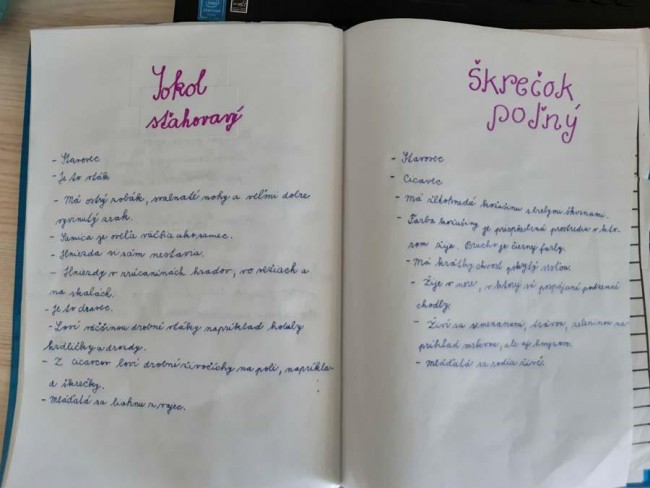 Sokol
sťahovavý
- Stavovec
- Je to vták
- Má ostrý zobák, svalnaté nohy a veľmi dobre
vyvinutý zrak.
- Samica je oveľa väčšia ako samec.
- Hniezda si sám nestavia.
- Hniezdi v zrúcaninách hradov, vo vežiach a
na skalách.
- Je to dravec.
- Loví väčšinou drobné vtáky napríklad holuby
hrdličky a drozdy.
- Z cicavcov loví drobné živočíchy na poli, napríkla-
d škrečky.
- Mláďatá sa liahnu z vajec.
Škrečok
poľný
- Stavovec
- Cicavec
- Má žltohnedú kožušinu s bielymi škvrnami.
- Farba kožušiny je prispôsobená prostrediu v kto-
rom žije. Brucho je čiernej farby.
- Má krátky chvost pokrytý srsťou.
- Žije v nore, v ktorej sú pospájané podzemné
chodby.
- Živí sa semenami, trávou, zeleninou na-
príklad mrkvou, ale aj hmyzom.
- Mláďatá sa rodia živé.